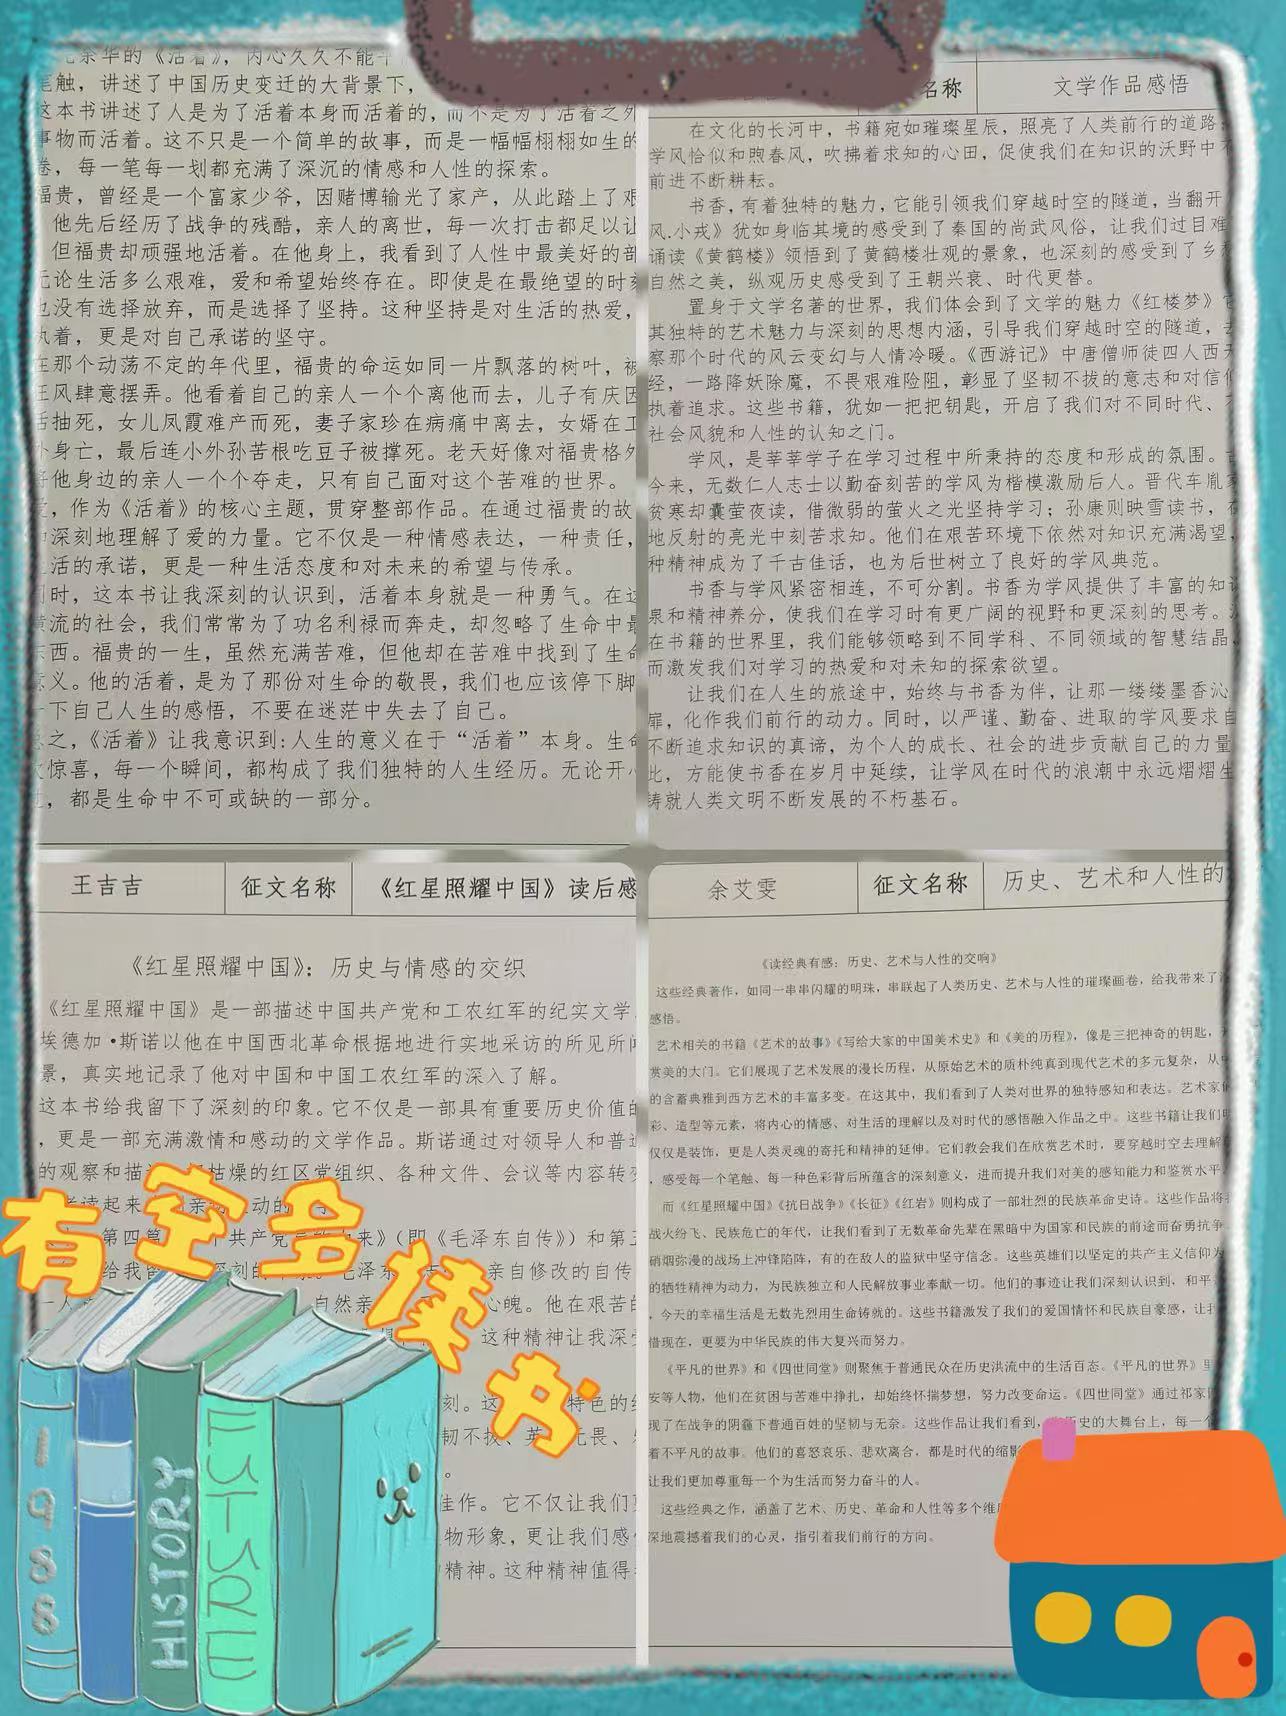 余华的《活着》，内心久久不能
笔触，讲述了中国历史变迁的大背景下，
这本书讲述了人是为了活着本身而活着的，而不是为了活着之外
事物而活着。这不只是一个简单的故事，而是一幅幅栩栩如生的
卷，每一笔每一划都充满了深沉的情感和人性的探索。
福贵，曾经是一个富家少爷，因赌博输光了家产，从此踏上了艰
他先后经历了战争的残酷，亲人的离世，每一次打击都足以让
但福贵却顽强地活着。在他身上，我看到了人性中最美好的部
无论生活多么艰难，爱和希望始终存在。即使是在最绝望的时刻
也没有选择放弃，而是选择了坚持。这种坚持是对生活的热爱，
执着，更是对自己承诺的坚守。
在那个动荡不定的年代里，福贵的命运如同一片飘落的树叶，被
狂风肆意摆弄。他看着自己的亲人一个个离他而去，儿子有庆因
活抽死，女儿凤霞难产而死，妻子家珍在病痛中离去，女婿在工
外身亡，最后连小外孙苦根吃豆子被撑死。老天好像对福贵格外
将他身边的亲人一个个夺走，只有自己面对这个苦难的世界。
爱，作为《活着》的核心主题，贯穿整部作品。在通过福贵的故
深刻地理解了爱的力量。它不仅是一种情感表达，一种责任，
活的承诺，更是一种生活态度和对未来的希望与传承。
同时，这本书让我深刻的认识到，活着本身就是一种勇气。在这
横流的社会，我们常常为了功名利禄而奔走，却忽略了生命中最
东西。福贵的一生，虽然充满苦难，但他却在苦难中找到了生命
意义。他的活着，是为了那份对生命的敬畏，我们也应该停下脚
一下自己人生的感悟，不要在迷茫中失去了自己。
总之，《活着》让我意识到：人生的意义在于“活着”本身。生命
次惊喜，每一个瞬间，都构成了我们独特的人生经历。无论开心
，都是生命中不可或缺的一部分。
名称 文学作品感悟
在文化的长河中，书籍宛如璀璨星辰，照亮了人类前行的道路；
学风恰似和煦春风，吹拂着求知的心田，促使我们在知识的沃野中不
前进不断耕耘。
书香，有着独特的魅力，它能引领我们穿越时空的隧道，当翻开
风.小戎》犹如身临其境的感受到了秦国的尚武风俗，让我们过目难
诵读《黄鹤楼》领悟到了黄鹤楼壮观的景象，也深刻的感受到了乡愁
自然之美，纵观历史感受到了王朝兴衰、时代更替。
置身于文学名著的世界，我们体会到了文学的魅力《红楼梦》它
其独特的艺术魅力与深刻的思想内涵，引导我们穿越时空的隧道，去
察那个时代的风云变幻与人情冷暖。《西游记》中唐僧师徒四人西天
经，一路降妖除魔，不畏艰难险阻，彰显了坚韧不拔的意志和对信仰
执着追求。这些书籍，犹如一把把钥匙，开启了我们对不同时代、不
社会风貌和人性的认知之门。
学风，是莘莘学子在学习过程中所秉持的态度和形成的氛围。古
今来，无数仁人志士以勤奋刻苦的学风为楷模激励后人。晋代车胤家
贫寒却囊萤夜读，借微弱的萤火之光坚持学习；孙康则映雪读书，在
地反射的亮光中刻苦求知。他们在艰苦环境下依然对知识充满渴望，
种精神成为了千古佳话，也为后世树立了良好的学风典范。
书香与学风紧密相连，不可分割。书香为学风提供了丰富的知识
泉和精神养分，使我们在学习时有更广阔的视野和更深刻的思考。沉
在书籍的世界里，我们能够领略到不同学科、不同领域的智慧结晶，
而激发我们对学习的热爱和对未知的探索欲望。
让我们在人生的旅途中，始终与书香为伴，让那一缕缕墨香沁
扉，化作我们前行的动力。同时，以严谨、勤奋、进取的学风要求自
不断追求知识的真谛，为个人的成长、社会的进步贡献自己的力量
此，方能使书香在岁月中延续，让学风在时代的浪潮中永远熠熠生
铸就人类文明不断发展的不朽基石。
王吉吉 征文名称 《红星照耀中国》读后感
《红星照耀中国》：历史与情感的交织
《红星照耀中国》是一部描述中国共产党和工农红军的纪实文学
埃德加·斯诺以他在中国西北革命根据地进行实地采访的所见所闻
景，真实地记录了他对中国和中国工农红军的深入了解。
这本书给我留下了深刻的印象。它不仅是一部具有重要历史价值的
，更是一部充满激情和感动的文学作品。斯诺通过对领导人和普通
的观察和描 枯燥的红区党组织、各种文件、会议等内容转变
读起来 亲 动的
第四篇 个共产党 来》（即《毛泽东自传》）和第五
给我留 深刻的 毛泽东 志 亲自修改的自传
一人 自然亲 心魄。他在艰苦的
这种精神让我深受
刻。这 特色的红
韧不拔、英 无畏、
。
佳作。它不仅让我们
物形象，更让我们感
精神。这种精神值得
余艾雯 征文名称 历史、艺术和人性的
《读经典有感：历史、艺术与人性的交响》
这些经典著作，如同一串串闪耀的明珠，串联起了人类历史、艺术与人性的璀璨画卷，给我带来了深
感悟。
艺术相关的书籍《艺术的故事》《写给大家的中国美术史》和《美的历程》，像是三把神奇的钥匙，开
赏美的大门。它们展现了艺术发展的漫长历程，从原始艺术的质朴纯真到现代艺术的多元复杂，从中
的含蓄典雅到西方艺术的丰富多变。在这其中，我们看到了人类对世界的独特感知和表达。艺术家们
彩、造型等元素，将内心的情感、对生活的理解以及对时代的感悟融入作品之中。这些书籍让我们明
仅仅是装饰，更是人类灵魂的寄托和精神的延伸。它们教会我们在欣赏艺术时，要穿越时空去理解
，感受每一个笔触、每一种色彩背后所蕴含的深刻意义，进而提升我们对美的感知能力和鉴赏水平。
而《红星照耀中国》《抗日战争》《长征》《红岩》则构成了一部壮烈的民族革命史诗。这些作品将我
战火纷飞、民族危亡的年代，让我们看到了无数革命先辈在黑暗中为国家和民族的前途而奋勇抗争
硝烟弥漫的战场上冲锋陷阵，有的在敌人的监狱中坚守信念。这些英雄们以坚定的共产主义信仰为
的牺牲精神为动力，为民族独立和人民解放事业奉献一切。他们的事迹让我们深刻认识到，和平
，今天的幸福生活是无数先烈用生命铸就的。这些书籍激发了我们的爱国情怀和民族自豪感，让我
惜现在，更要为中华民族的伟大复兴而努力。
《平凡的世界》和《四世同堂》则聚焦于普通民众在历史洪流中的生活百态。《平凡的世界》里
安等人物，他们在贫困与苦难中挣扎，却始终怀揣梦想，努力改变命运。《四世同堂》通过祁家
现了在战争的阴霾下普通百姓的坚韧与无奈。这些作品让我们看到，在历史的大舞台上，每一个
着不平凡的故事。他们的喜怒哀乐、悲欢离合，都是时代的缩影
让我们更加尊重每一个为生活而努力奋斗的人。
这些经典之作，涵盖了艺术、历史、革命和人性等多个维
深地震撼着我们的心灵，指引着我们前行的方向。
有空多读书
1988
HISTORY
FUTURE